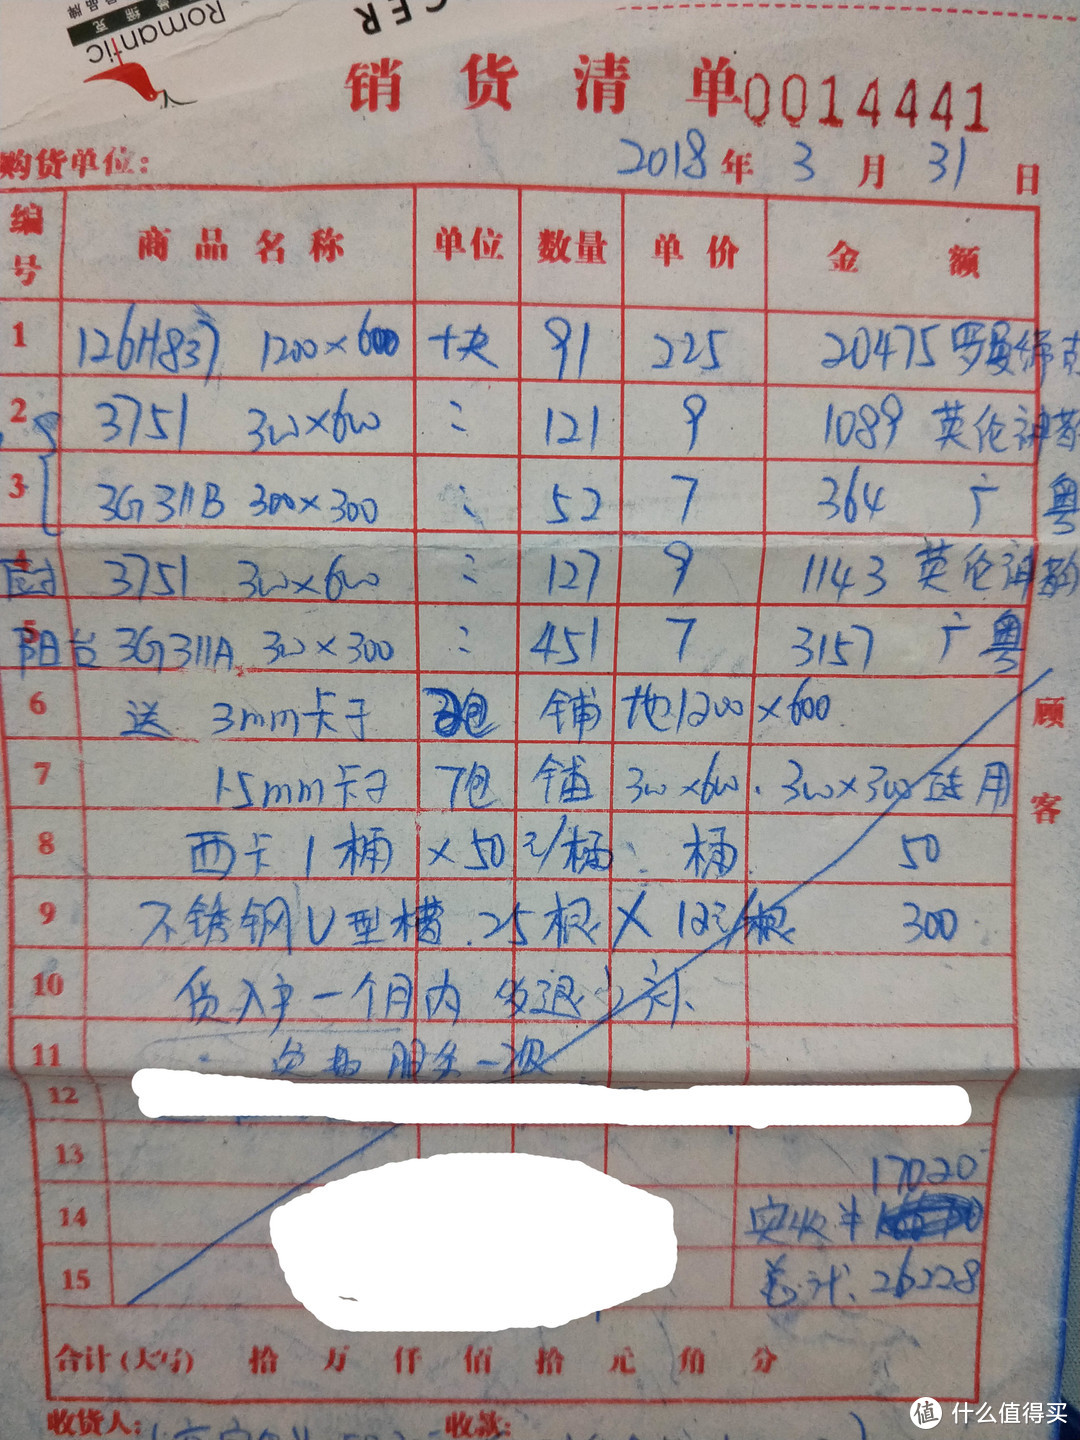 Romantic
CER
销货清单 0014441
购货单位: 2018年3月31日
编号 商品名称 单位 数量 单价 金额
1 126H837 1200×600 块 91 225 20475 罗曼缔克
2 3751 300×600 : 121 9 1089 英伦神韵
3 3G311B 300×300 : 52 7 364 广粤
4 3751 300×600 : 127 9 1143 英伦神韵
阳台 5 3G311A 300×300 : 451 7 3157 广粤
6 送 3mm卡子 包 铺地1200×600
7 1.5mm卡子 7包 铺 300×600.300×300 用
8 西卡1桶 ×50元/桶 : 桶 50
9 不锈钢U型槽.25根×12元/根 300
10 货入户一个月内 多退少补
11 服务一级
12
13 17020
14 实收¥
15 总计.26228
顾客
合计(大写) 拾 万 仟 佰 拾 元 角 分
收货人: 收款:
值 什么值得买